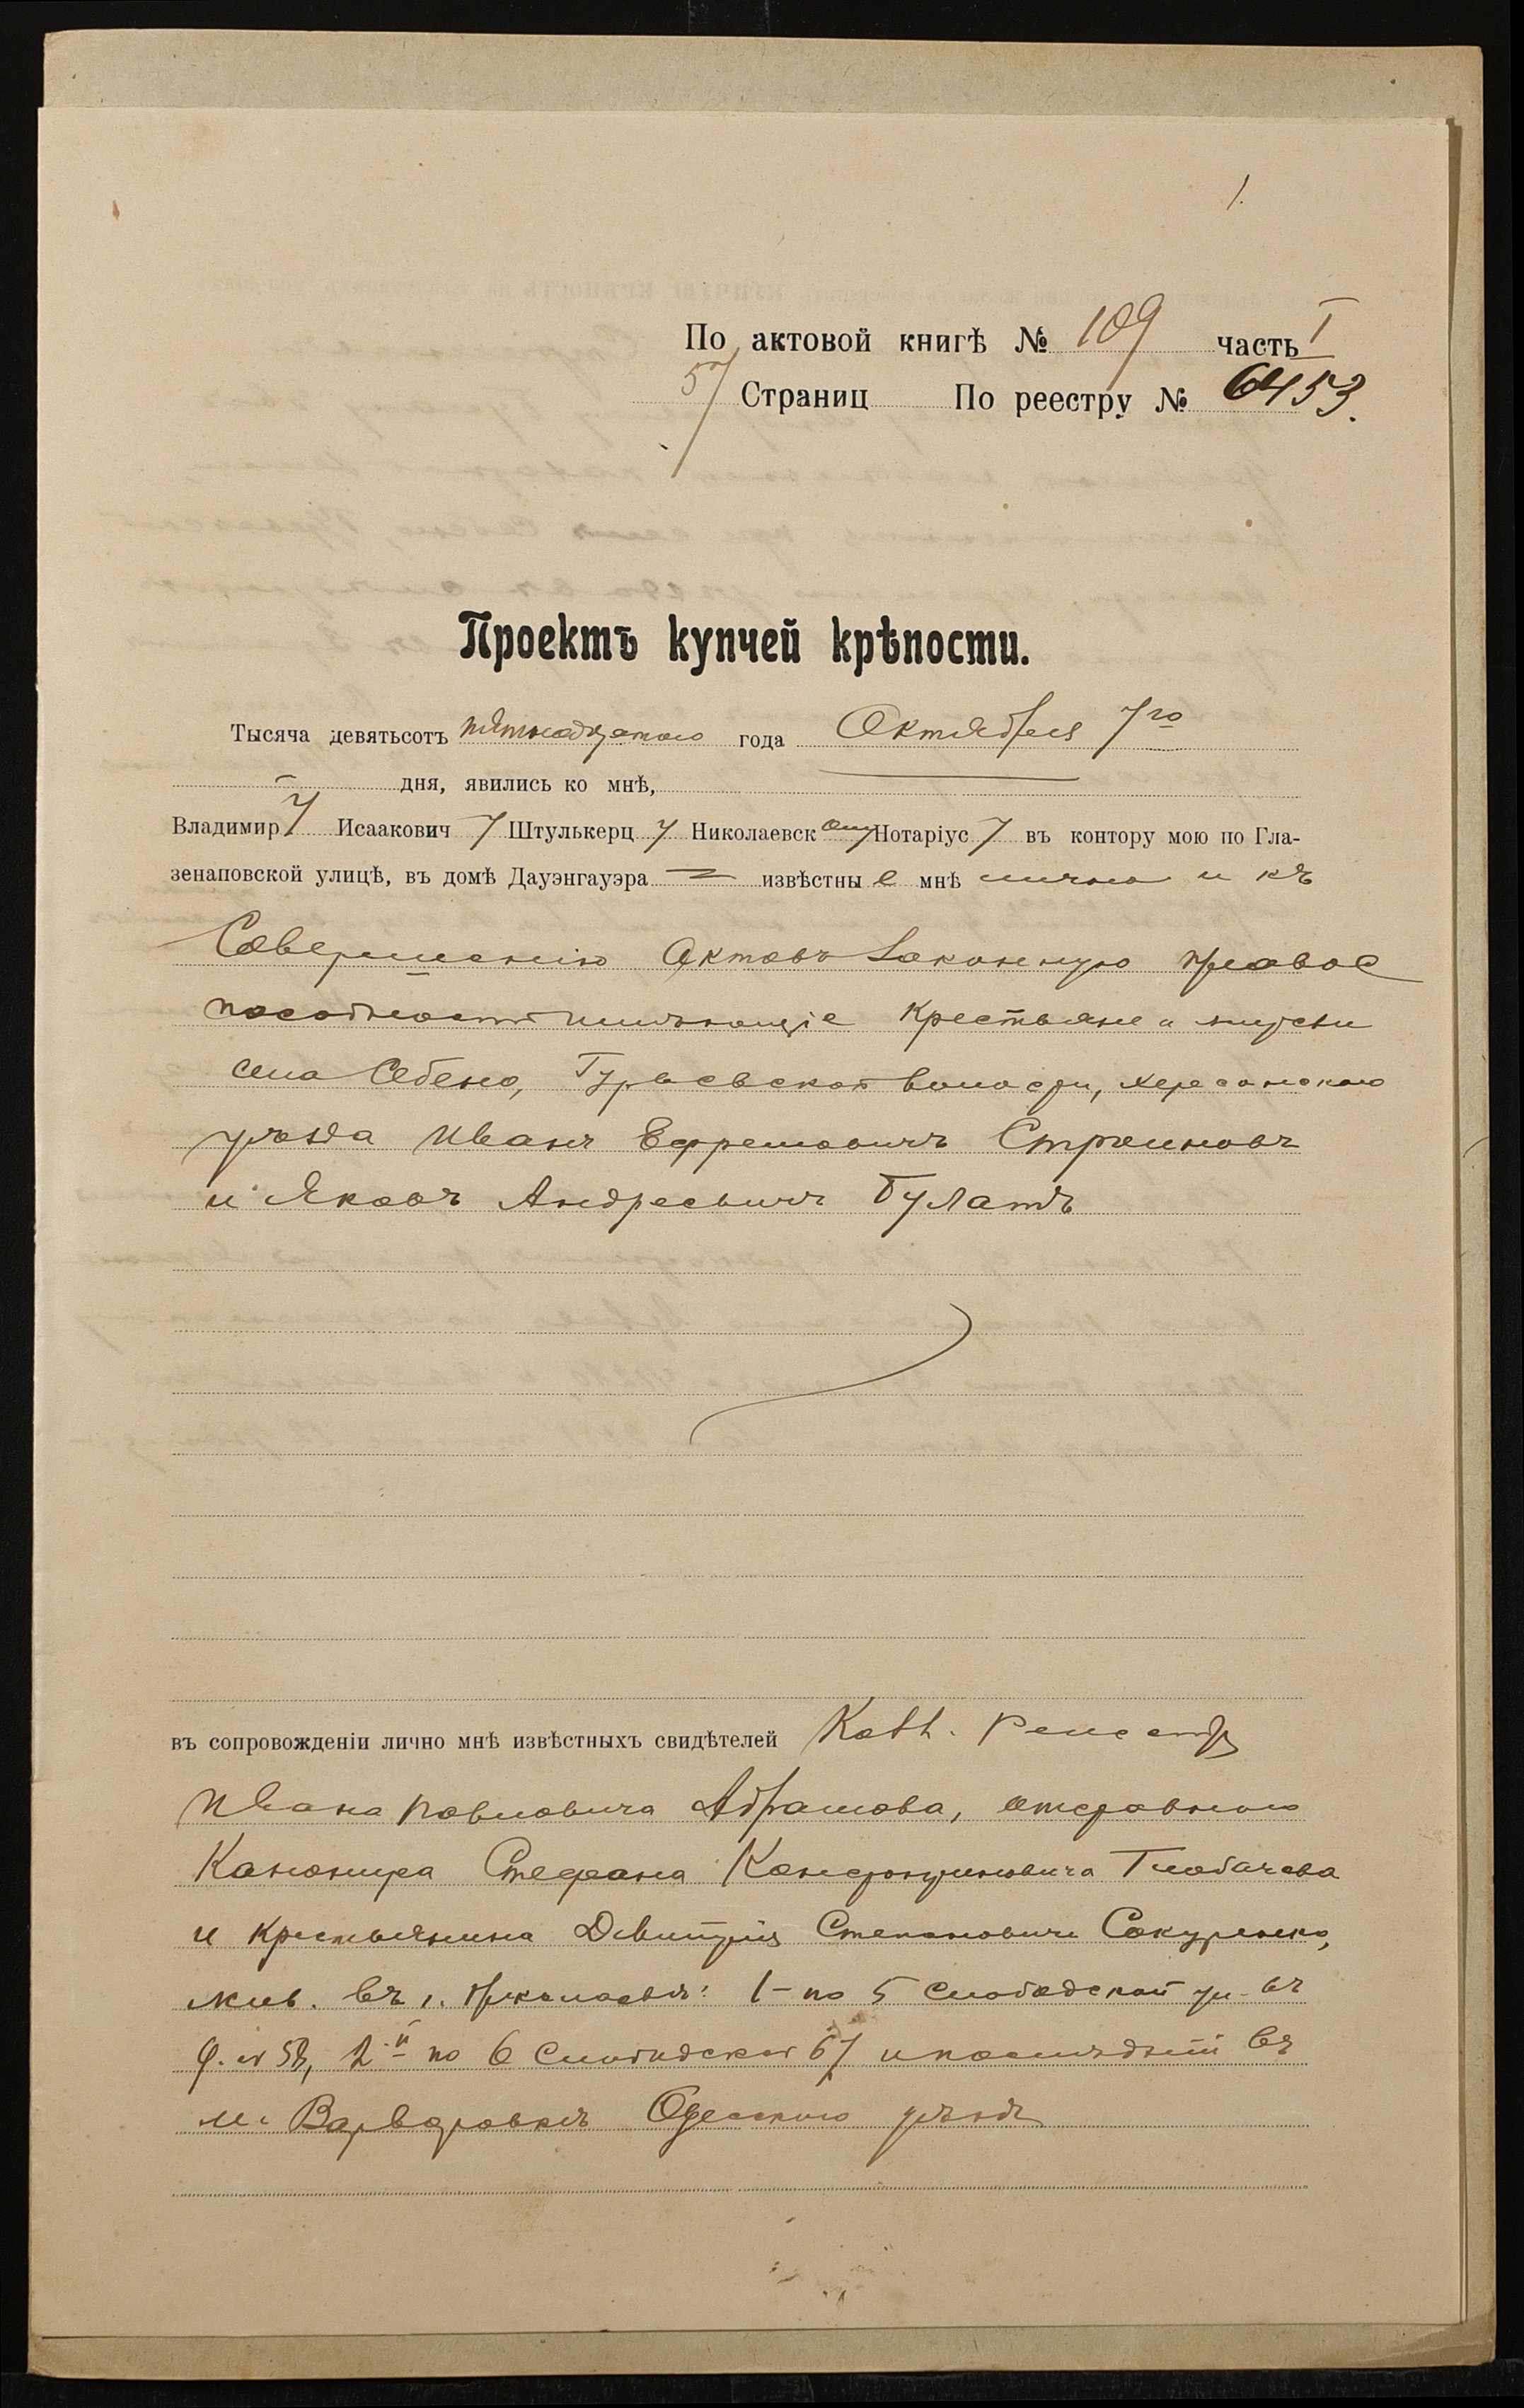 1.
По актовой книгѣ № 109 часть I
57 Страниц По реестру № 6453.
Проектъ купчей крѣпости.
Тысяча девятьсотъ пятнадцатого года Октября 7го
дня, явились ко мнѣ,
Владимир у Исаакович у Штулькерц у Николаевск ому Нотаріус у въ контору мою по Гла-
зенаповской улицѣ, въ домѣ Дауэнгауэра извѣстны е мнѣ лично и къ
Совершенію Актовъ законную право
способность имѣющіе Крестьяне
села Себено, Гурьевской волости, Херсонского
уѣзда Иванъ Ефремовичъ
и Яковъ Андреевичъ Булатъ
въ сопровожденіи лично мнѣ извѣстныхъ свидѣтелей
Ивана Павловича Абрамова, отставного
Канонира Стефана Константиновича Глобачева
и Крестьянина Дмитрія Степановича Сокуренко,
жив. въ г. Николаевѣ: 1- по 5 Слободской ул. въ
д. № 58, 2й по 6 Слободской 67 и послѣдній въ
м. Варваровкѣ Одесского уѣзда